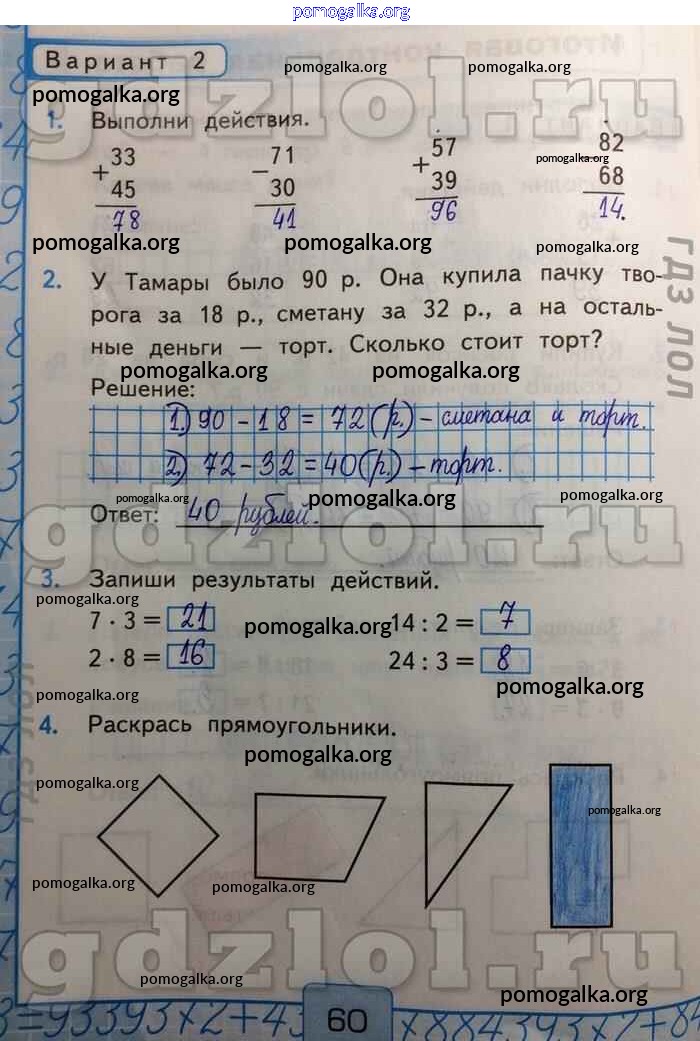 pomogalka.org
Вариант 2
pomogalka.org pomogalka.org
pomogalka.org
gdzlol.ru
1. Выполни действия.
33 71 57 82
+ − + pomogalka.org
45 30 39 68
78 41 96 14.
pomogalka.org pomogalka.org pomogalka.org
2. У Тамары было 90 р. Она купила пачку тво-
рога за 18 р., сметану за 32 р., а на осталь-
ные деньги — торт. Сколько стоит торт?
pomogalka.org pomogalka.org
гдз лол
Решение:
1.) 90 - 18 = 72 (р.) - сметана и торт.
2.) 72 - 32 = 40 (р.) - торт.
pomogalka.org pomogalka.org pomogalka.org
Ответ: 40 рублей.
gdzlol.ru
3. Запиши результаты действий.
pomogalka.org
7 · 3 = 21 pomogalka.org 14 : 2 = 7
2 · 8 = 16 24 : 3 = 8
pomogalka.org pomogalka.org
гдз лол
4. Раскрась прямоугольники.
pomogalka.org
pomogalka.org pomogalka.org
pomogalka.org pomogalka.org
gdzlol.ru
pomogalka.org pomogalka.org
3=93393×2+43 60 ×884393×7+84